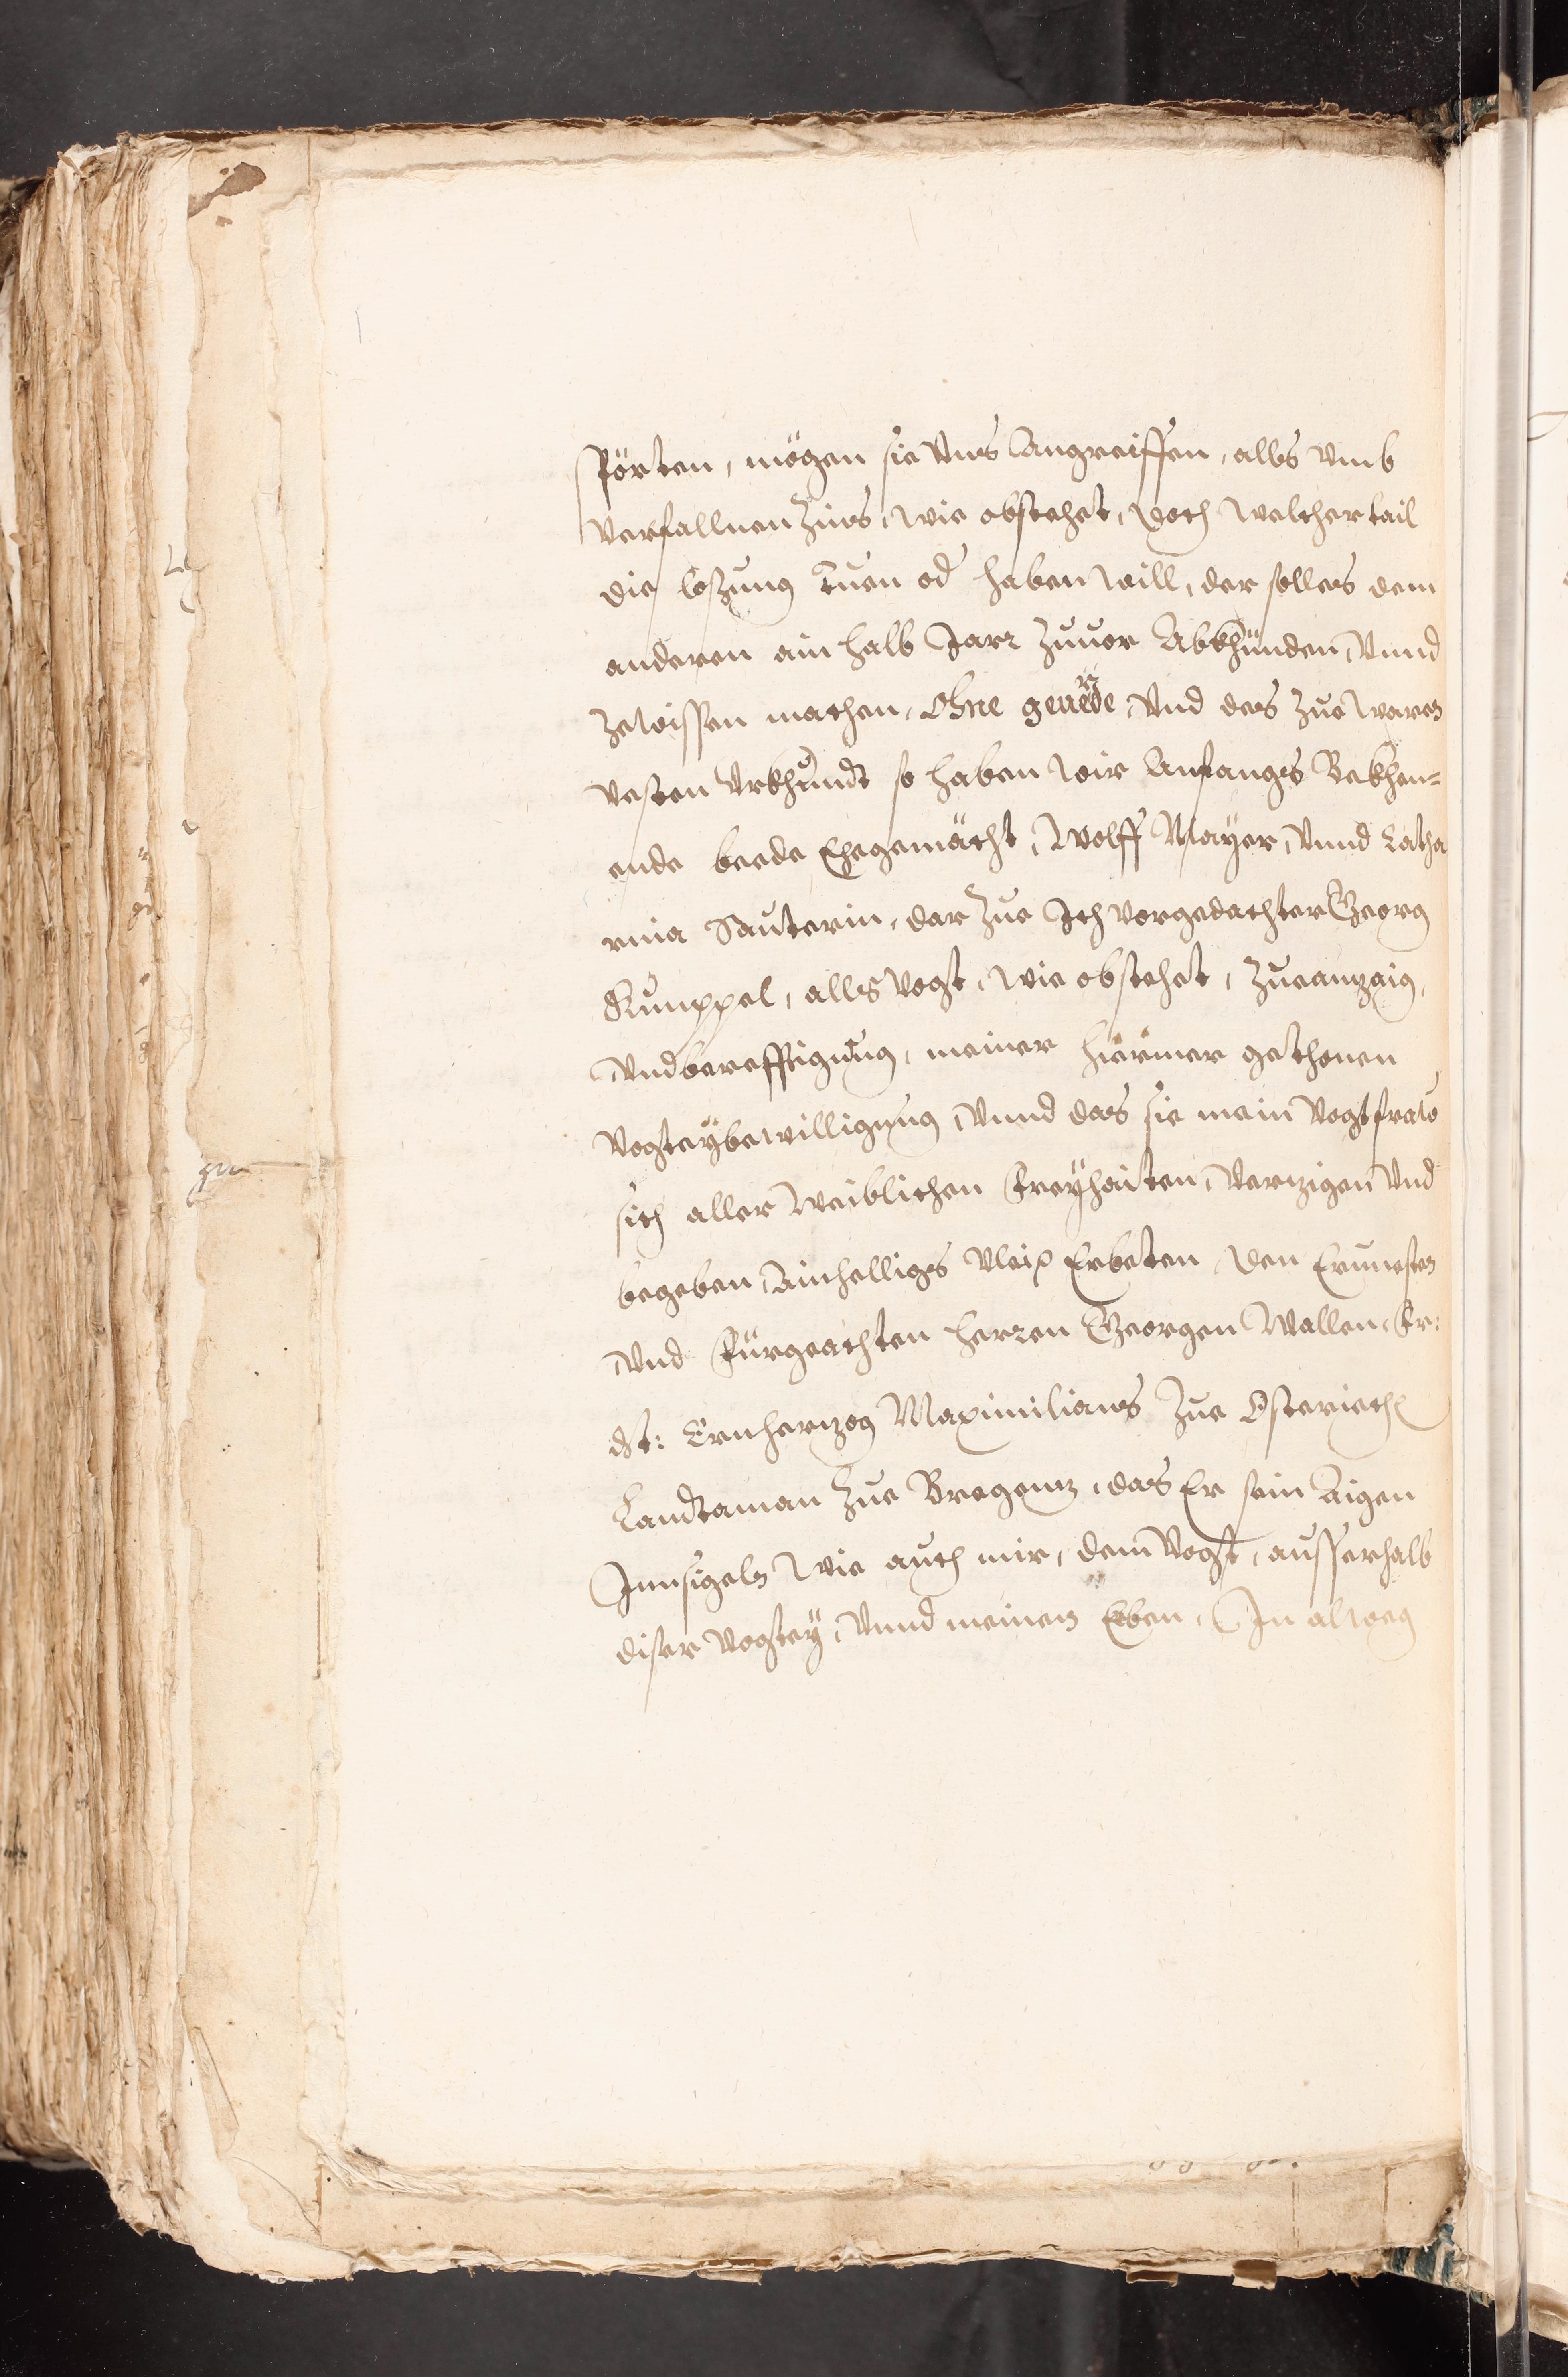 spörten, mögen sie Vns Angreiffen, alls vmb
verfallnen Zins, wie obstehet, doch welcher tail
die losung Tuen od haben will, der solles dem
anderen ain halb Jarr zuuor Abkhünden, Vnnd
zewissen machen, Ohne geuerde, Vnd des zue waren
vesten Vrkhundt so haben wir Anfangs Bekhen=
ende beede Ehegemächt, Wolff Mayer, Vnnd Catha
rina Sauterin, dar zue Ich vorgedachter Georg
alls Vogt, wie obstehet, zueanzaig,
Vnd becrefftigung, meiner hierinnen gethonen
Vogteybewilligung, Vnnd das sie mein Vogtfraw
sich aller Weiblichen Freyhaiten, Verzigen Vnd
begeben, Ainhelligs Vleiß Erbeten, den Ernuesten
Vnd Fürgeachten herren Georgen Wallen, Fr:
dt: Ertzhertzog Maximilians Zue Osterreich
Landtaman Zue Bregentz, das Er sein Aigen
Innsigeln wie auch mir, dem Vogt, ausserhalb
diser Vogtey, Vnnd meinen Erben, In alweg